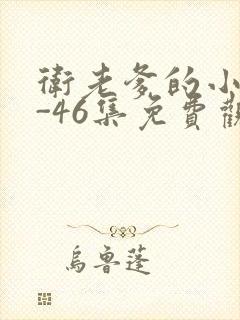 衛老爹的小
-46集免費觀
烏魯蓬